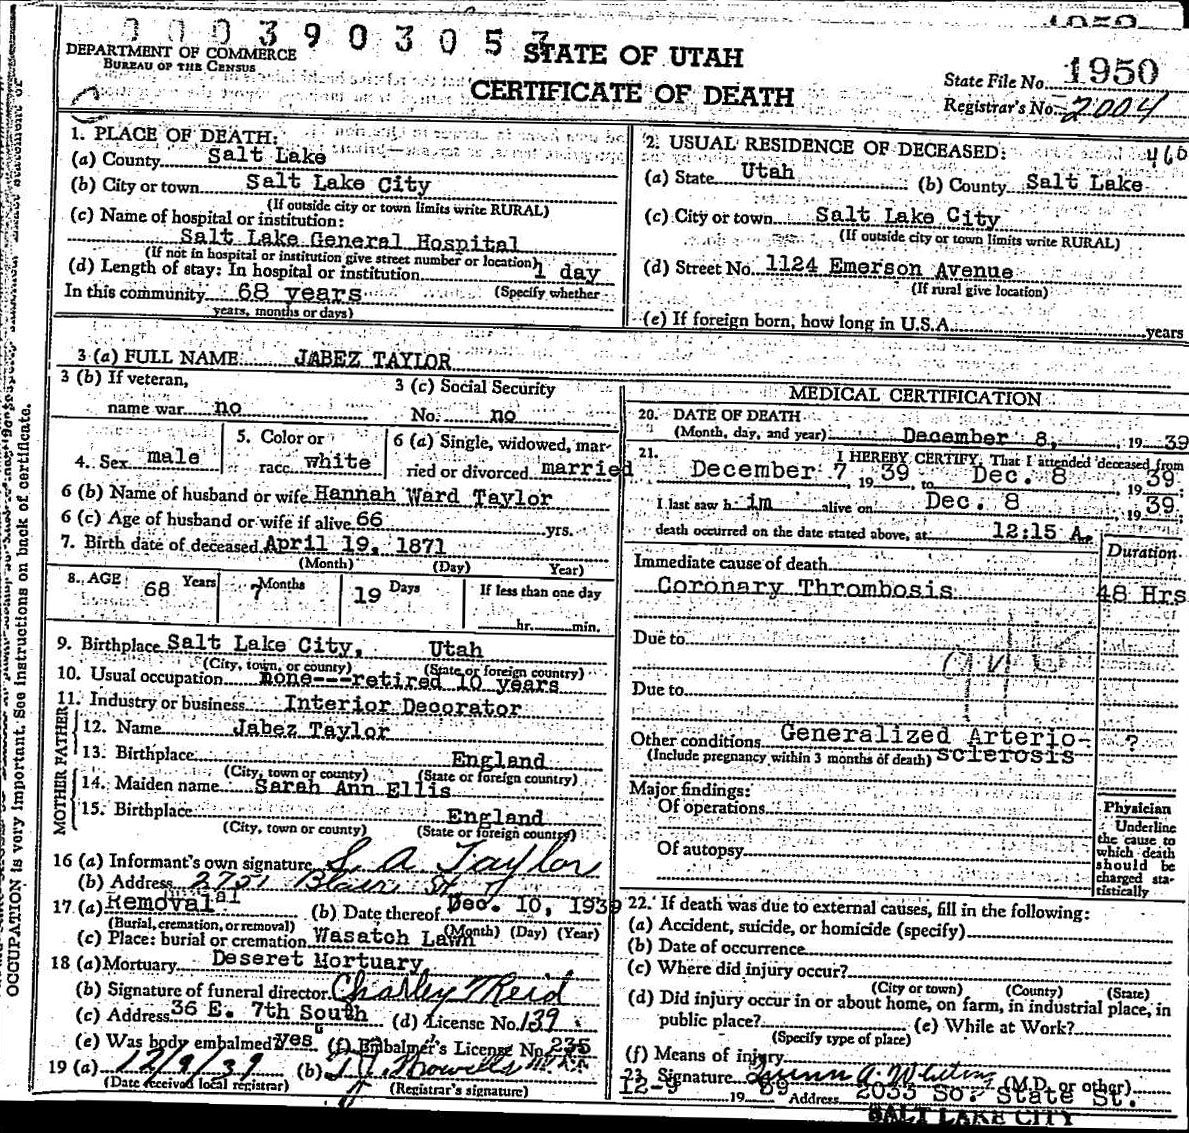 0003903057
DEPARTMENT OF COMMERCE
BUREAU OF THE CENSUS
STATE OF UTAH
CERTIFICATE OF DEATH
State File No. 1950
Registrar's No. 2004
1. PLACE OF DEATH:
(a) County Salt Lake
(b) City or town Salt Lake City
(If outside city or town limits write RURAL)
(c) Name of hospital or institution:
Salt Lake General Hospital
(If not in hospital or institution give street number or location)
(d) Length of stay: In hospital or institution 1 day
In this community 68 years (Specify whether
years, months or days)
2. USUAL RESIDENCE OF DECEASED: 460
(a) State Utah (b) County Salt Lake
(c) City or town Salt Lake City
(If outside city or town limits write RURAL)
(d) Street No. 1124 Emerson Avenue
(If rural give location)
(e) If foreign born, how long in U.S.A. years
3 (a) FULL NAME JABEZ TAYLOR
3 (b) If veteran,
name war no
3 (c) Social Security
No. no
4. Sex male
5. Color or
race white
6 (a) Single, widowed, mar-
ried or divorced married
6 (b) Name of husband or wife Hannah Ward Taylor
6 (c) Age of husband or wife if alive 66 yrs.
7. Birth date of deceased April 19, 1871
(Month) (Day) Year)
8. AGE 68 Years 7 Months 19 Days If less than one day
hr. min.
9. Birthplace Salt Lake City, Utah
(City, town, or county) (State or foreign country)
10. Usual occupation none---retired 10 years
11. Industry or business Interior Decorator
FATHER
12. Name Jabez Taylor
13. Birthplace England
(City, town or county) (State or foreign country)
MOTHER
14. Maiden name Sarah Ann Ellis
15. Birthplace England
(City, town or county) (State or foreign country)
16 (a) Informant's own signature S. A Taylor
(b) Address 2751 Blair St
17 (a) Removal (b) Date thereof Dec. 10, 1939
(Burial, cremation, or removal) (Month) (Day) (Year)
(c) Place: burial or cremation Wasatch Lawn
18 (a) Mortuary Deseret Mortuary
(b) Signature of funeral director Charley Reid
(c) Address 36 E. 7th South (d) License No. 139
(e) Was body embalmed? yes (f) Embalmer's License No. 235
19 (a) 12/9/39 (b)
(Date received local registrar) (Registrar's signature)
MEDICAL CERTIFICATION
20. DATE OF DEATH
(Month, day, and year) December 8, 19 39
21. I HEREBY CERTIFY, That I attended deceased from
December 7, 19 39, to Dec. 8 19 39;
I last saw h im alive on Dec. 8 19 39,
death occurred on the date stated above, at 12:15 A.
Duration
Immediate cause of death
Coronary Thrombosis 48 Hrs
Due to
Due to
Other conditions Generalized Arterio- ?
(Include pregnancy within 3 months of death) sclerosis
Major findings:
Of operations
Of autopsy
Physician
Underline
the cause to
which death
should be
charged sta-
tistically
22. If death was due to external causes, fill in the following:
(a) Accident, suicide, or homicide (specify)
(b) Date of occurrence
(c) Where did injury occur?
(City or town) (County) (State)
(d) Did injury occur in or about home, on farm, in industrial place, in
public place? (e) While at Work?
(Specify type of place)
(f) Means of injury
23. Signature Quinn A. Whiting (M.D. or other)
12-9 19 39 Address 2033 So. State St.
SALT LAKE CITY
OCCUPATION is very important. See instructions on back of certificate.